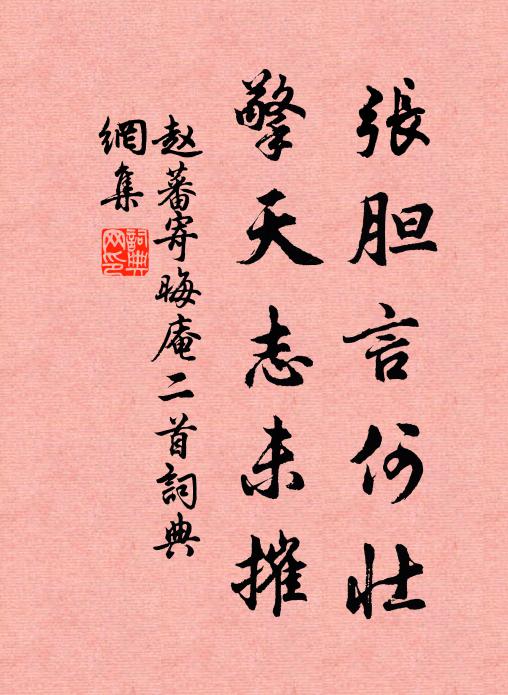 張胆言何壯
擎天志未摧
赵蕃寄晦庵二首詞典
網集
詞典
网印